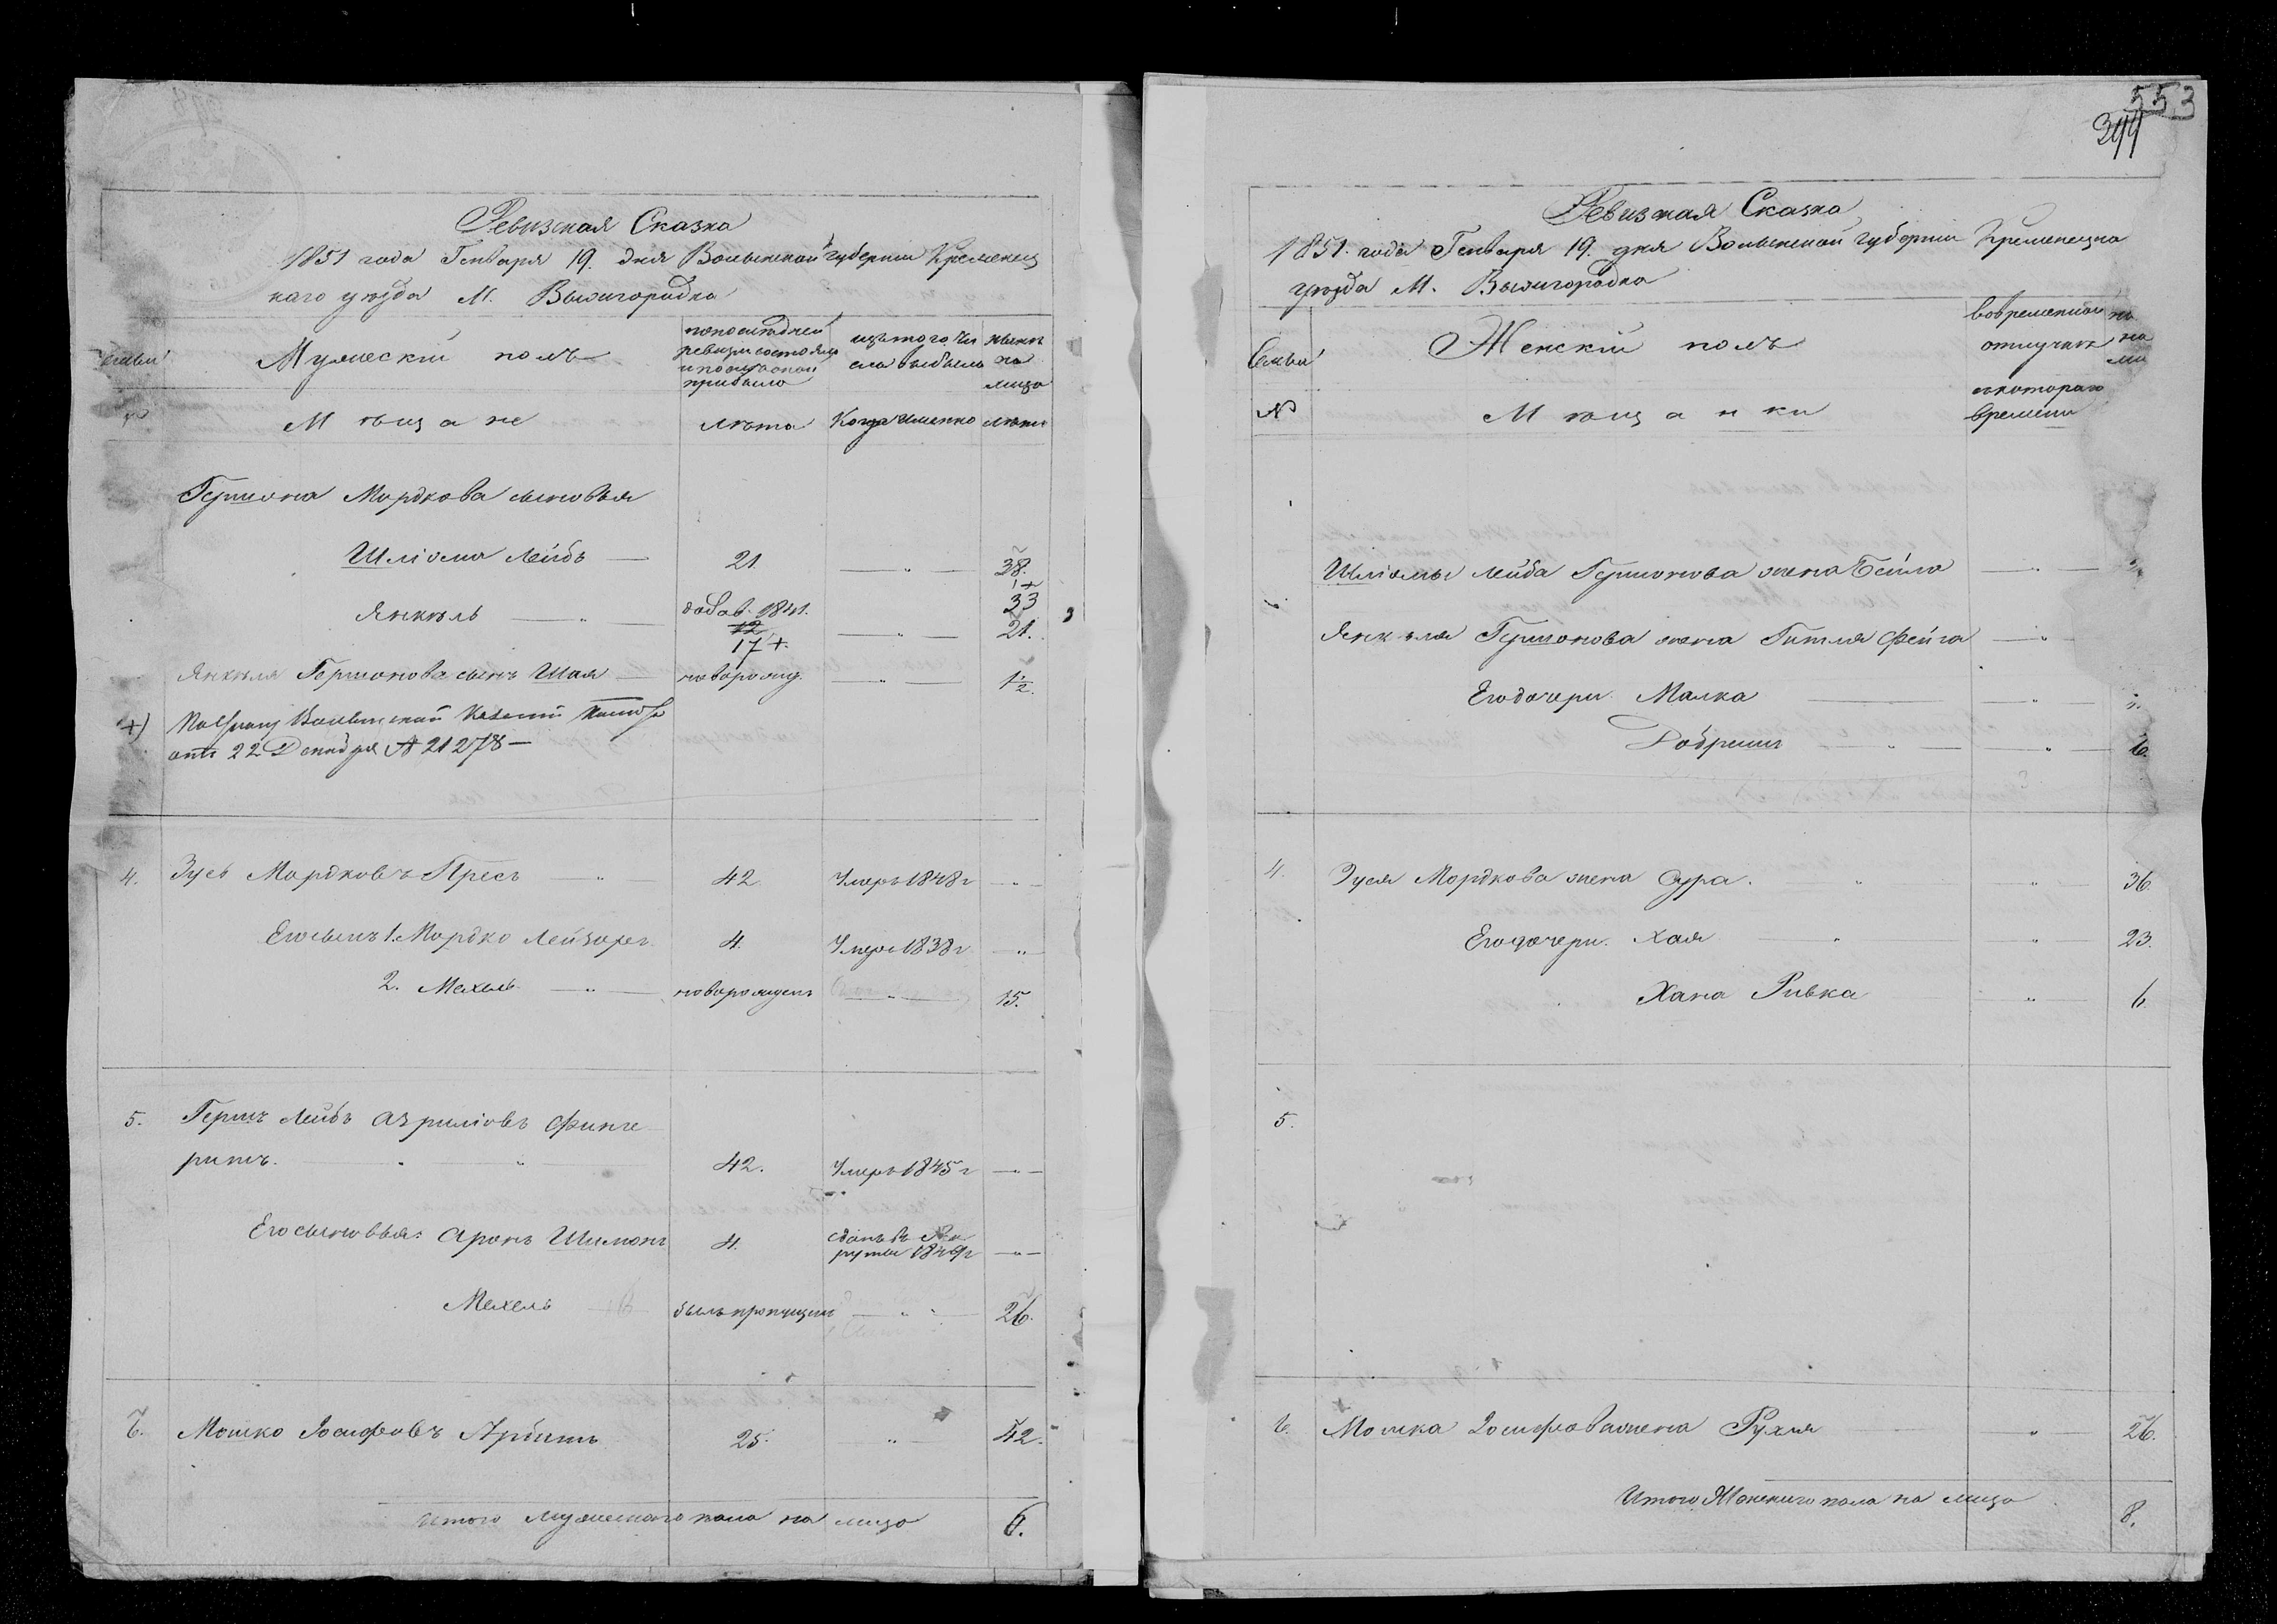 Ревизская Сказка
1851 года Генваря 19. дня Волынской губернии Кременец
каго уезда М. Вышгородка
Семьи
Мужескій полъ
по последней
ревизіи состояло
и после оной
прибыло
изъ того чи
сла выбыло
ныне
на
лицо
№
Мѣщане
лѣта
Когда именно
лѣта
Гершона Мордкова сыновья
Шліома Лейбъ — 21. — " — 38.
Янкель — " — добав. 1841. 12 17+. — " — 1+ 33 21.
Янкеля Гершонова сынъ Шая — новорожд. — " — 1/2.
+) Волынской Казенной
отъ 22 Декабря № 21278 —
4. Зусь Мордковъ Пресъ — " 42 Умеръ 1848 г — " —
Его сынъ 1. Мордко Лейзоръ 4. Умеръ 1838 г — " —
2. Мехель — " — новорожденъ — " — 15.
5. Гершъ Лейбъ Азриліовъ Финге
ритъ. — " — 42. Умеръ 1845 г — " —
Его сыновья: Аронъ Шимонъ 4. сданъ въ Ре
круты 1849 г — " —
Мехель былъ пропущенъ — " — 26.
6. Мошко Іосифовъ Арбитъ 25. " — 42.
Итого мужескаго пола на лицо 6.
553
344
Ревизская Сказка
1851. года Генваря 19. дня Волынской губерніи Кременецка
уезда М. Вышгородка
Семьи
Женскій полъ
во временной
отлучке
на
ли
№
Мѣщанки
с котораго
времени
Шліомы Лейба Гершонова жена Бейла — " —
Янкеля Гершонова жена Гитля Фейга — "
Его дочери. Малка — " —
Добрешъ — " — " — 6.
4. Зуся Мордкова жена Сура. " — " — 36.
Его дочери. Хая — " — " — 23.
Хана Ривка " — 6.
5.
6. Мошка Іосифова жена Рухля " — 26.
Итого Женскаго пола на лицо 8.